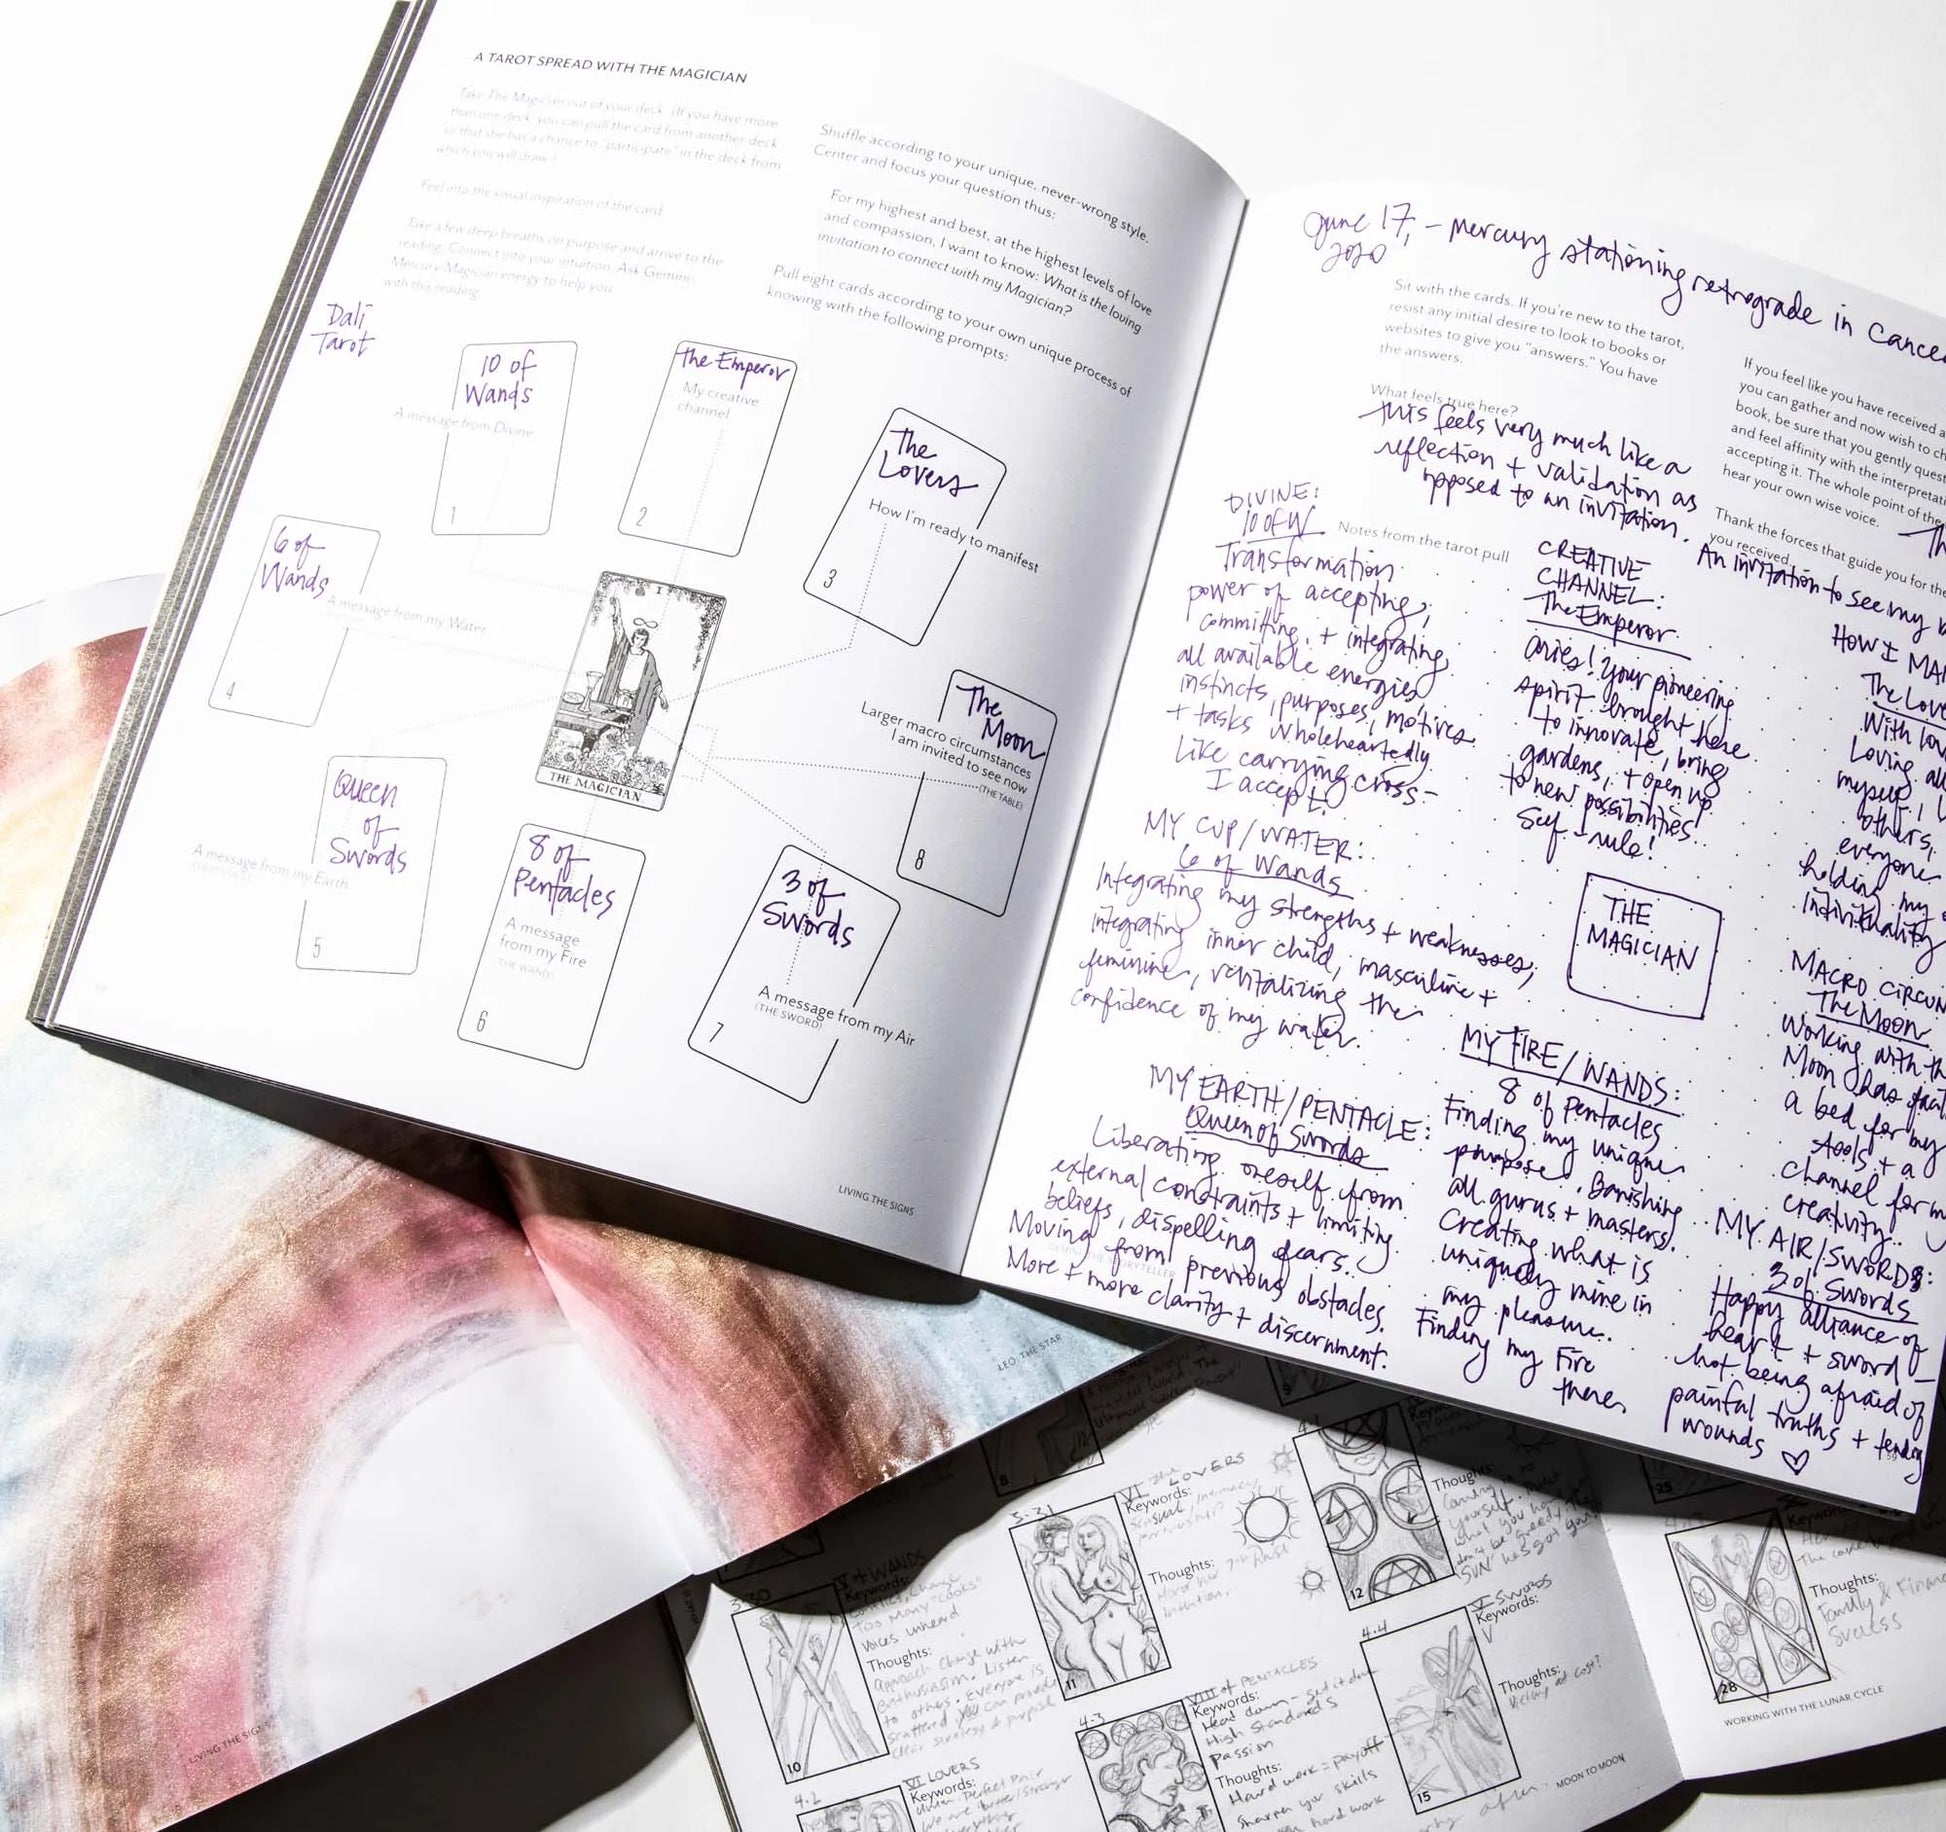 A TAROT SPREAD WITH THE MAGICIAN
Take The Magician out of your deck. (If you have more
than one deck, you can pull the card from another deck
so that she has a chance to "participate" in the deck from
which you will draw.)
Feel into the visual inspiration of the card.
Take a few deep breaths on purpose and arrive to the
reading. Connect into your intuition. Ask Gemini-
Mercury-Magician energy to help you
with this reading.
Shuffle according to your unique, never-wrong style.
Center and focus your question thus:
For my highest and best, at the highest levels of love
and compassion, I want to know: What is the loving
invitation to connect with my Magician?
Pull eight cards according to your own unique process of
knowing with the following prompts:
Dali
Tarot
10 of
Wands
A message from Divine
1
The Emperor
My creative
channel
2
The
Lovers
How I'm ready to manifest
3
6 of
Wands
A message from my Water
4
I
THE MAGICIAN
The
Moon
Larger macro circumstances
I am invited to see now
(THE TABLE)
8
Queen
of
Swords
A message from my Earth
5
8 of
Pentacles
A message
from my Fire
(THE WAND)
6
3 of
Swords
A message from my Air
(THE SWORD)
7
LIVING THE SIGNS
June 17, - Mercury stationing retrograde in Cancer
2020
Sit with the cards. If you're new to the tarot,
resist any initial desire to look to books or
websites to give you "answers." You have
the answers.
What feels true here?
This feels very much like a
reflection + validation as
opposed to an invitation.
An invitation to see my
If you feel like you have received
you can gather and now wish to
book, be sure that you gently
and feel affinity with the
accepting it. The whole point of the
hear your own wise voice.
Thank the forces that guide you for the
you received.
Notes from the tarot pull
DIVINE:
10 of W
Transformation
power of accepting,
committing, + integrating
all available energies,
instincts, purposes, motives
+ tasks wholeheartedly
Like carrying cross-
I accept!
CREATIVE
CHANNEL:
The Emperor
Aries! Your pioneering
spirit brought here
to innovate, bring
gardens, + open up
to new possibilities!
Self-rule!
HOW I
The
With
Loving
myself,
others,
everyone
holding my
individuality
MY CUP/WATER:
6 of Wands
Integrating my strengths + weaknesses,
integrating inner child, masculine +
feminine, revitalizing the
confidence of my water.
THE
MAGICIAN
MACRO
The Moon
Working with
Moon has
a bed for my
tools + a
channel for
creativity.
MY EARTH/PENTACLE:
Queen of Swords
Liberating oneself from
external constraints + limiting
beliefs, dispelling fears.
Moving from previous obstacles.
More + more clarity + discernment.
MY FIRE/WANDS:
8 of Pentacles
Finding my unique
purpose. Banishing
all gurus + masters.
Creating what is
uniquely mine in
my pleasure.
Finding my Fire
there.
MY AIR/SWORDS:
3 of Swords
Happy alliance of
heart + sword -
not being afraid of
painful truths +
wounds ♡
LEO: THE STAR
LIVING THE SIGNS
V of WANDS
Keywords:
Change
Too Many "Cooks"
Voices unheard
Thoughts:
Approach Change with
enthusiasm. Listen
to others. Everyone is
10
3-31
VI the LOVERS
Keywords:
Sensual, intimacy
Thoughts:
11
Thoughts:
12
4.4
V SWORDS
Keywords:
Thoughts:
Victory at cost?
15
4.3
VIII of PENTACLES
Keywords:
Head down - get it done
High Standards
Passion
Thoughts:
Hard work = payoff
Sharpen your skills
hard work
4.2
VI LOVERS
Keywords:
MOON TO MOON
25
Thoughts:
Family & Finance
Success
28
WORKING WITH THE LUNAR CYCLE